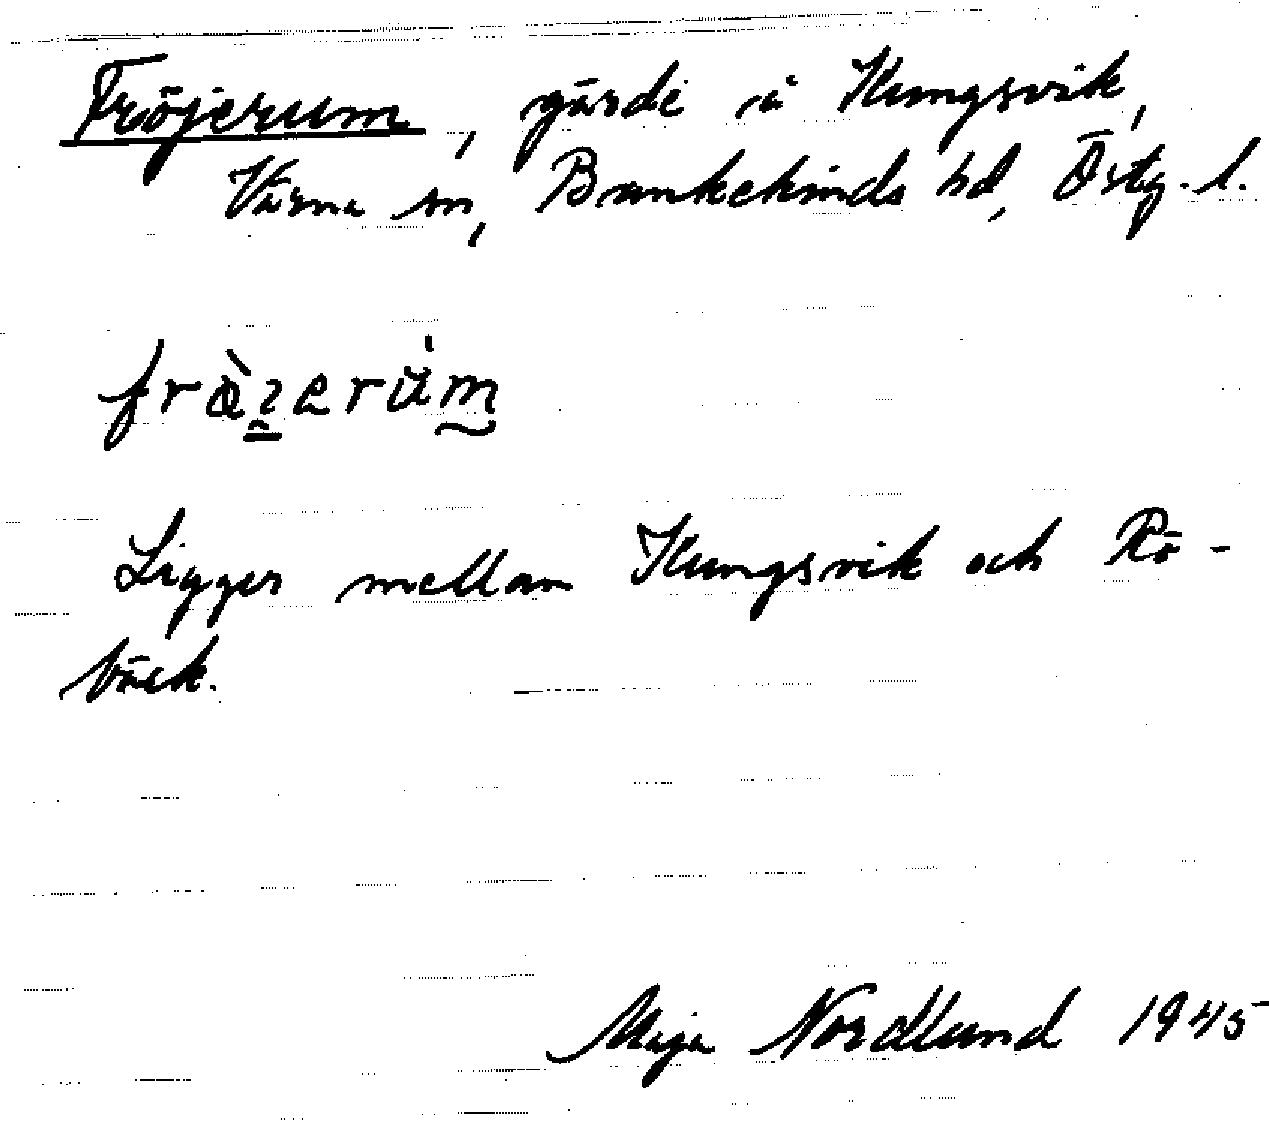 Fröjerum, gärde i Kungsvik,
Värna sn, Bankekinds hd, Östg. l.
Ligger mellan Kungsvik och Rö-
bäck.
Maja Nordlund 1945